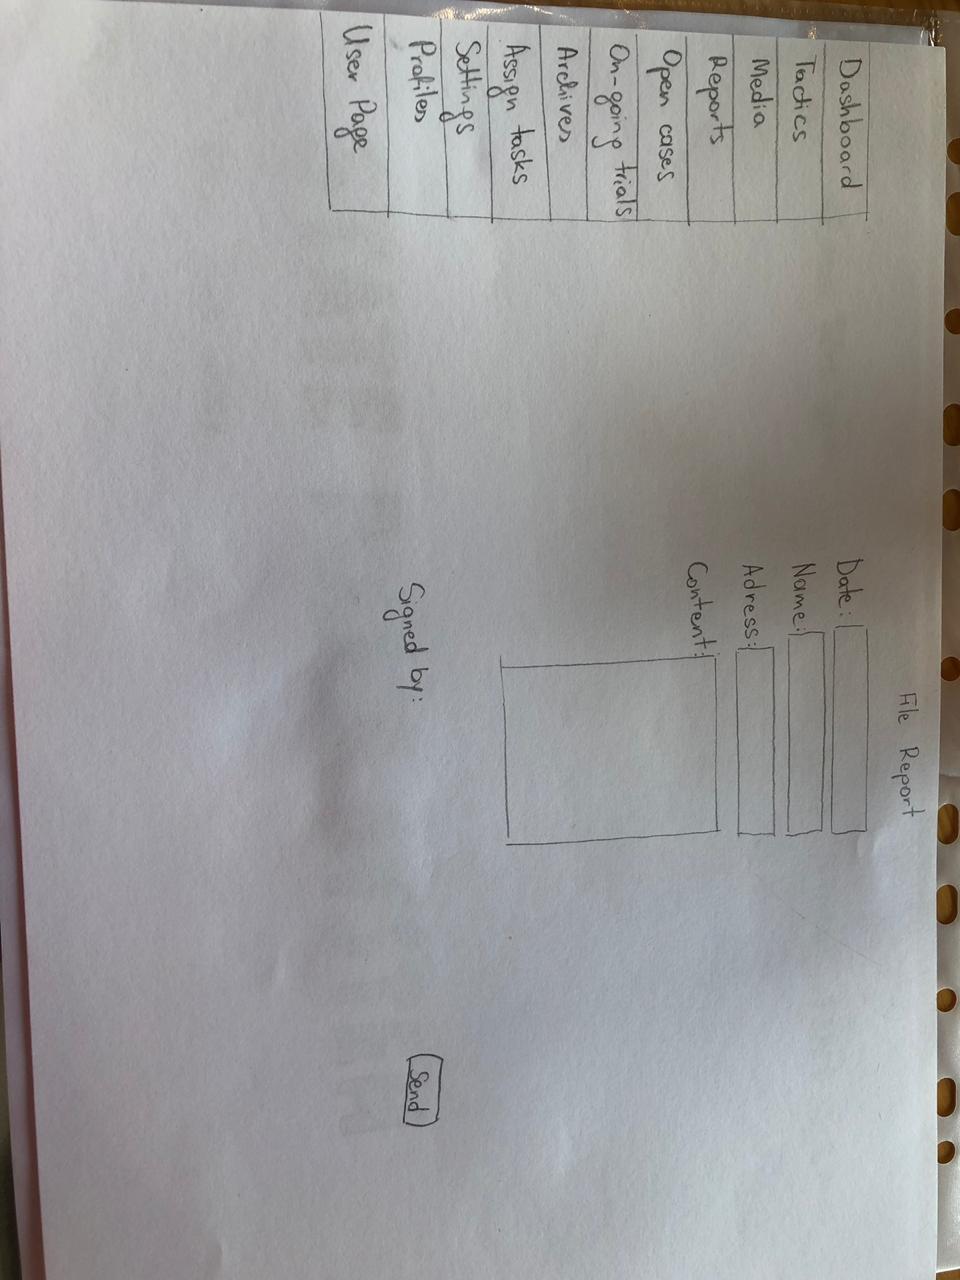 Dashboard
Tactics
Media
Reports
Open cases
On-going trials
Archives
Assign tasks
Settings
Profiles
User Page
File Report
Date:
Name:
Adress:
Content:
Signed by:
Send